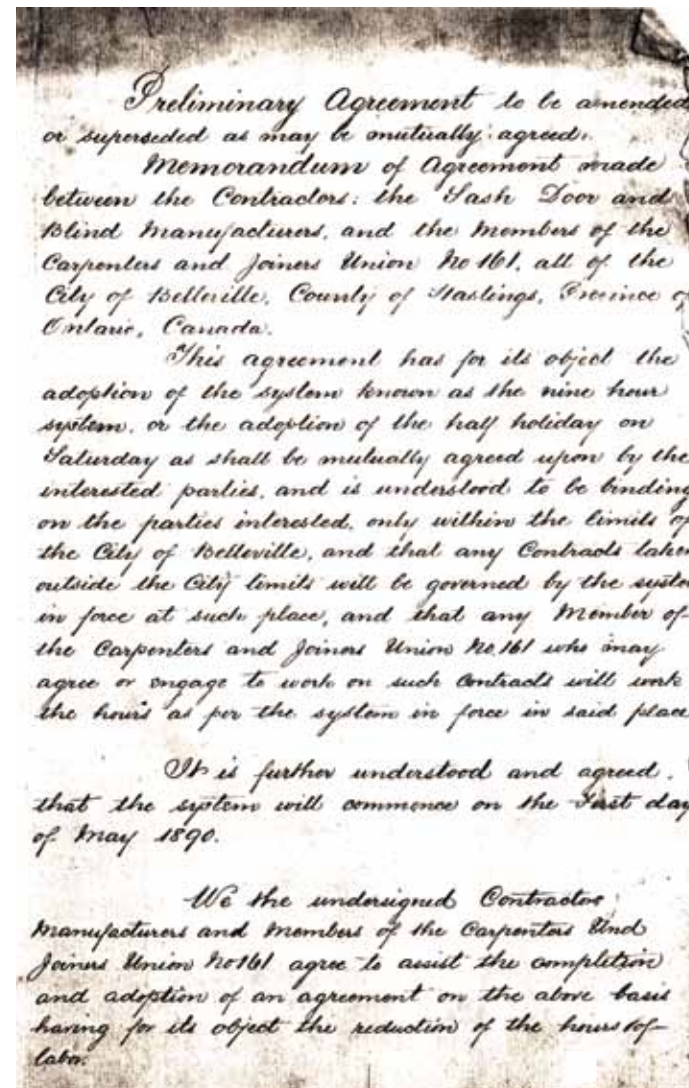 Preliminary Agreement to be amended
or superseded as may be mutually agreed.
Memorandum of Agreement made
between the Contractors: the Sash Door and
Blind Manufacturers, and the Members of the
Carpenters and Joiners Union No 161, all of the
City of Belleville, County of Hastings, Province o
Ontario, Canada.
This agreement has for its object the
adoption of the system known as the nine hour
system, or the adoption of the half holiday on
Saturday as shall be mutually agreed upon by the
interested parties, and is understood to be binding
on the parties interested, only within the limits of
the City of Belleville, and that any Contracts taken
outside the City limits will be governed by the system
in force at such place, and that any Member of
the Carpenters and Joiners Union No. 161 who may
agree or engage to work on such Contracts will work
the hours as per the system in force in said place
It is further understood and agreed,
that the system will commence on the First day
of May 1890.
We the undersigned Contractors
Manufacturers and Members of the Carpenters And
Joiners Union No 161 agree to assist the completion
and adoption of an agreement on the above basis
having for its object the reduction of the hours of
labor.